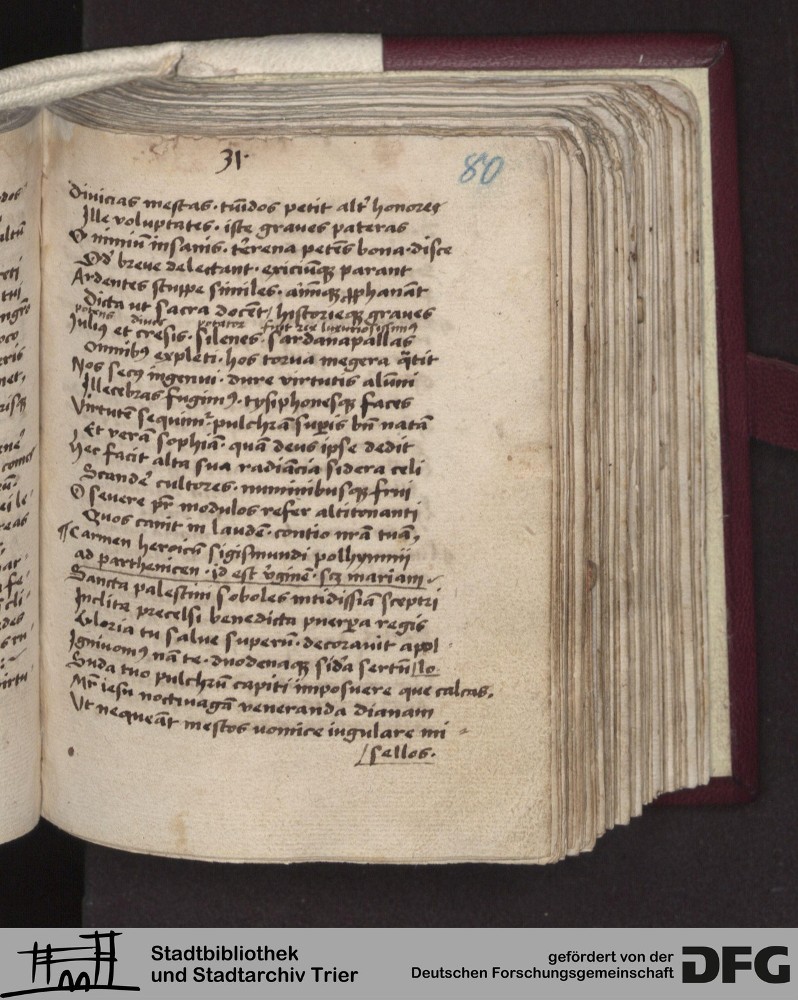 31·
80
Diuicias mestas· tu̅idos petit alt' honores
Ille voluptates· iste graues pateras
O nimiu̅ insanis· t'rena pete̅s bona· disce
breue delectant· exiciu̅qꝫ parant
Ardentes stuppe similes· ai̅mqꝫ ꝓphana̅t
Dicta ut sacra doce̅t/ historieqꝫ graues
potens diues potator fuit rex luxuriosissimꝰ
Juliꝰ et cresis· silenes· sardanapallas
Omnibꝰ expleti· hos torua megera q̅tit
Nos secꝰ ingenui· dure virtutis alu̅ni
Illecebras fugimꝰ· tysiphonesqꝫ faces
Virtute̅ sequimr· pulchra̅ suꝑis bn̅ nata̅
Et vera̅ sophia̅· qua̅ deus ipse dedit
Hec facit alta sua radia̅cia sidera celi
Scande' cultores· numinibusqꝫ frui
O seuere pr̅ modulos refer altitonanti
Quos canit in laude̅· contio nr̅a tua̅,
¶ Carmen heroicu̅ sigismundi polhymnii
ad parthenicen· id est v'gine̅· scꝫ mariam
Sancta palestini soboles nitidissi̅a sceptri
Inclita precelsi benedicta puerꝑa regis
Gloria tu salue superu̅· decorauit apol
Igniuomꝰ na̅ te· duodenaqꝫ sid'a sertu̅ /lo·
Suda tuo pulchru̅ capiti imposuere que calcas,
Mr̅ iesu noctiuaga̅ veneranda dianam
Ut nequea̅t mestos uomice iugulare mi
/sellos·
Stadtbibliothek
und Stadtarchiv Trier
gefördert von der
Deutschen Forschungsgemeinschaft
DFG